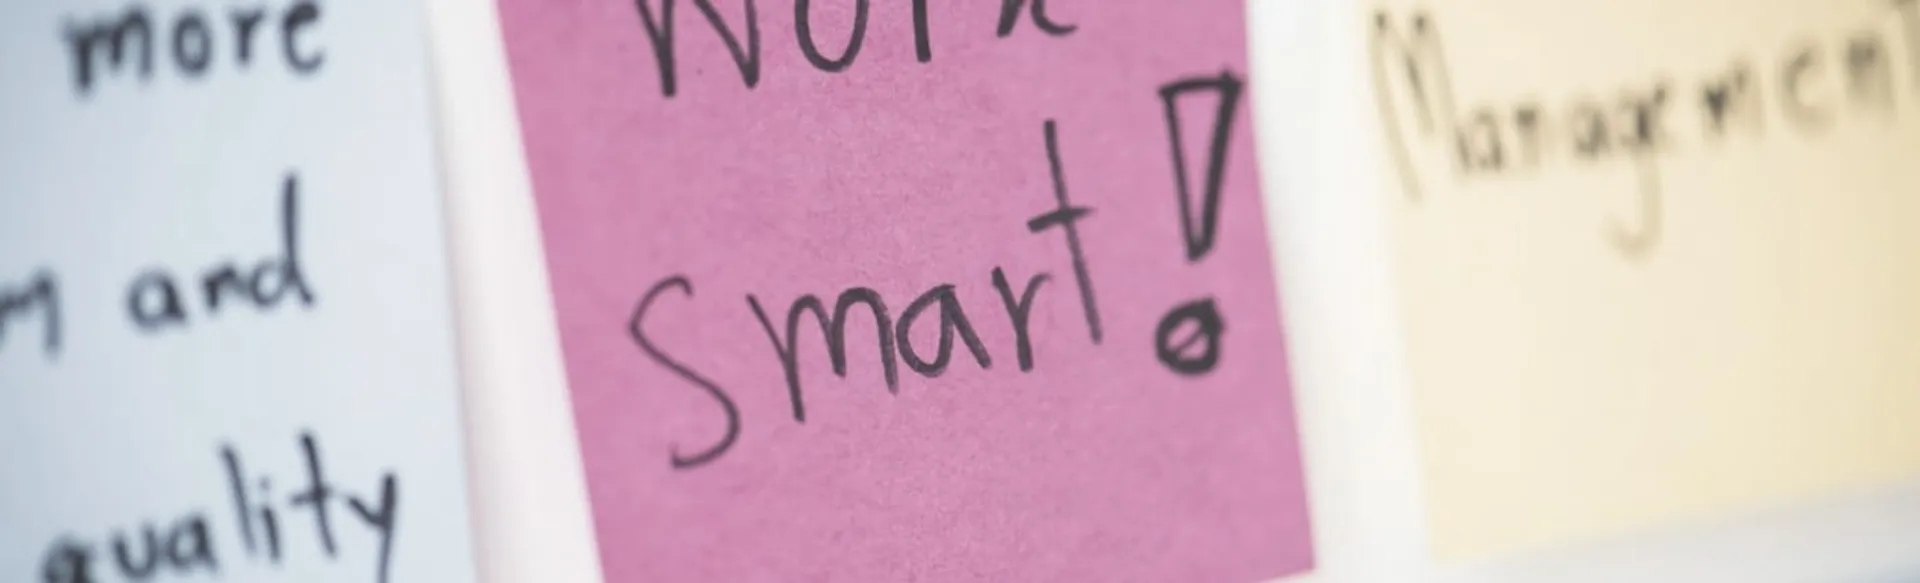 more
and
quality
Work
Smart!
Management